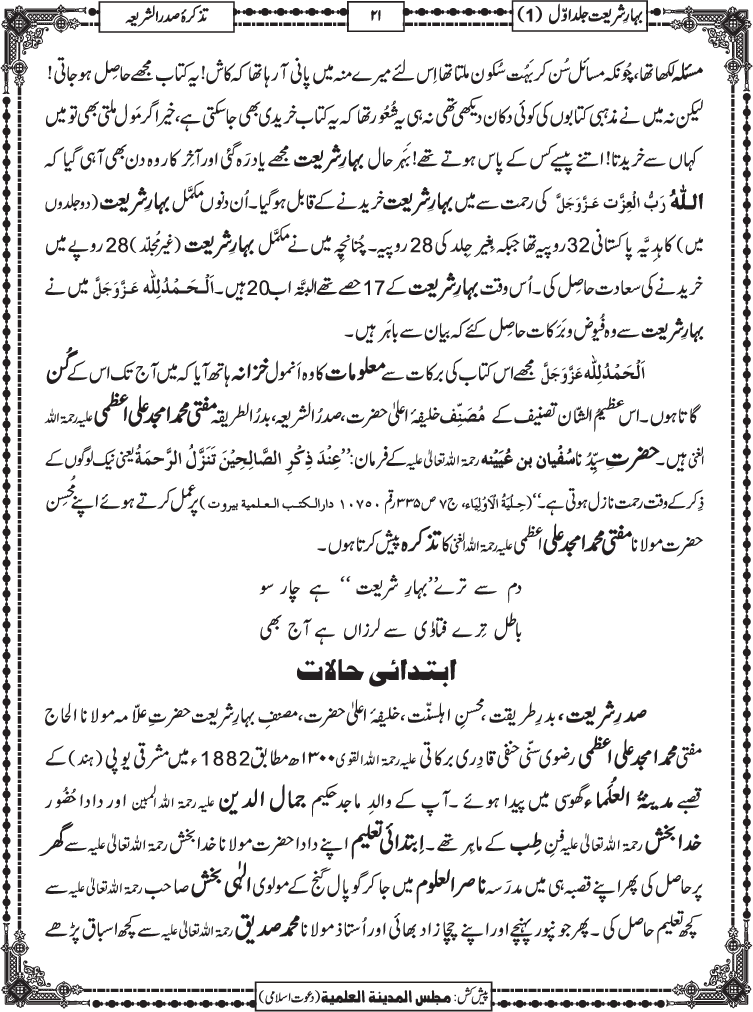 بہارِ شریعت جلد اوّل (1)
۲۱
تذکرۂ صدر الشریعہ
مسئلہ لکھا تھا، چُونکہ مسائل سُن کر بہُت سُکون ملتا تھا اِس لئے میرے منہ میں پانی آ رہا تھا کہ کاش! یہ کتاب مجھے حاصِل ہو جاتی!
لیکن نہ میں نے مذہبی کتابوں کی کوئی دکان دیکھی تھی نہ ہی یہ شُعُور تھا کہ یہ کتاب خریدی بھی جاسکتی ہے، خیر اگر مَول ملتی بھی تو میں
کہاں سے خریدتا! اتنے پیسے کس کے پاس ہوتے تھے! بَہَر حال بہارِ شریعت مجھے یاد رہ گئی اور آخِر کار وہ دن بھی آہی گیا کہ
اللّٰہُ رَبُّ الْعِزَّت عَزَّوَجَلَّ کی رحمت سے میں بہارِ شریعت خریدنے کے قابل ہو گیا۔ اُن دنوں مکمَّل بہارِ شریعت (دو جلدوں
میں) کا ہدِیَّہ پاکستانی 32 روپیہ تھا جبکہ بِغیر جِلد کی 28 روپیہ۔ چُنانچِہ میں نے مکمَّل بہارِ شریعت (غیر مُجلّد) 28 روپے میں
خریدنے کی سعادت حاصِل کی۔ اُس وقت بہارِ شریعت کے 17 حصے تھے البتَّہ اب 20 ہیں۔ اَلْحَمْدُلِلّٰہ عَزَّوَجَلَّ میں نے
بہارِ شریعت سے وہ فُیُوض و بَرَکات حاصِل کئے کہ بیان سے باہَر ہیں۔
اَلْحَمْدُلِلّٰہ عَزَّوَجَلَّ مجھے اس کتاب کی بَرَکات سے معلومات کا وہ اَنمول خزانہ ہاتھ آیا کہ میں آج تک اس کے گُن
گاتا ہوں۔ اس عظیمُ الشّان تصنیف کے مُصَنِّف خلیفۂ اعلیٰ حضرت، صدرُ الشریعہ، بدرُ الطریقہ مفتی محمد امجد علی اعظمی علیہ رحمۃ اللہ
الغنی ہیں۔ حضرتِ سیِّدُنا سُفْیان بن عُیَیْنہ رحمۃ اللہ تعالیٰ علیہ کے فرمان: ”عِنْدَ ذِکْرِ الصَّالِحِیْنَ تَنَزَّلُ الرَّحمۃُ یعنی نیک لوگوں کے
ذِکر کے وقت رحمت نازل ہوتی ہے۔“ (حِلیَۃُ الْاَوْلِیَاء، ج۷ ص۳۳۵ رقم ۱۰۷۵۰ دارالکتب العلمیۃ بیروت) پر عمل کرتے ہوئے اپنے مُحسِن
حضرت مولانا مفتی محمد امجد علی اعظمی علیہ رحمۃ اللہ الغنی کا تذکرہ پیش کرتا ہوں۔
دم سے ترے ”بہارِ شریعت“ ہے چار سو
باطل تِرے فتاوٰی سے لرزاں ہے آج بھی
ابتدائی حالات
صدرِ شریعت، بدرِ طریقت، محسنِ اہلسنّت، خلیفۂ اعلیٰ حضرت، مصنفِ بہارِ شریعت حضرتِ علّامہ مولانا الحاج
مفتی محمد امجد علی اعظمی رضوی سنّی حنفی قادِری برکاتی علیہ رحمۃ اللہ القوی ۱۳۰۰ھ مطابق 1882ء میں مشرقی یوپی (ہند) کے
قصبے مدینۃُ العُلَماء گھوسی میں پیدا ہوئے۔ آپ کے والدِ ماجد حکیم جمال الدین علیہ رحمۃ اللہ المبین اور دادا حُضُور
خدا بخش رحمۃ اللہ تعالیٰ علیہ فنِ طِب کے ماہِر تھے۔ اِبتدائی تعلیم اپنے دادا حضرت مولانا خدا بخش رحمۃ اللہ تعالیٰ علیہ سے گھر
پر حاصل کی پھر اپنے قصبہ ہی میں مدرَسہ ناصر العلوم میں جا کر گوپال گنج کے مولوی الٰہی بخش صاحب رحمۃ اللہ تعالیٰ علیہ سے
کچھ تعلیم حاصل کی۔ پھر جونپور پہنچے اور اپنے چچا زاد بھائی اور اُستاذ مولانا محمد صدیق رحمۃ اللہ تعالیٰ علیہ سے کچھ اسباق پڑھے
پیش کش: مجلس المدینۃ العلمیۃ (دعوت اسلامی)